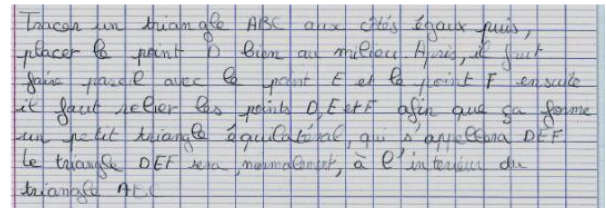 Tracer un triangle ABC aux côtés égaux puis,
placer le point D bien au milieu. Après, il faut
faire pareil avec le point E et le point F ensuite
il faut relier les points D, E et F afin que ça forme
un petit triangle équilatéral, qui s'appellera DEF.
Le triangle DEF sera, normalement, à l'intérieur du
triangle ABC